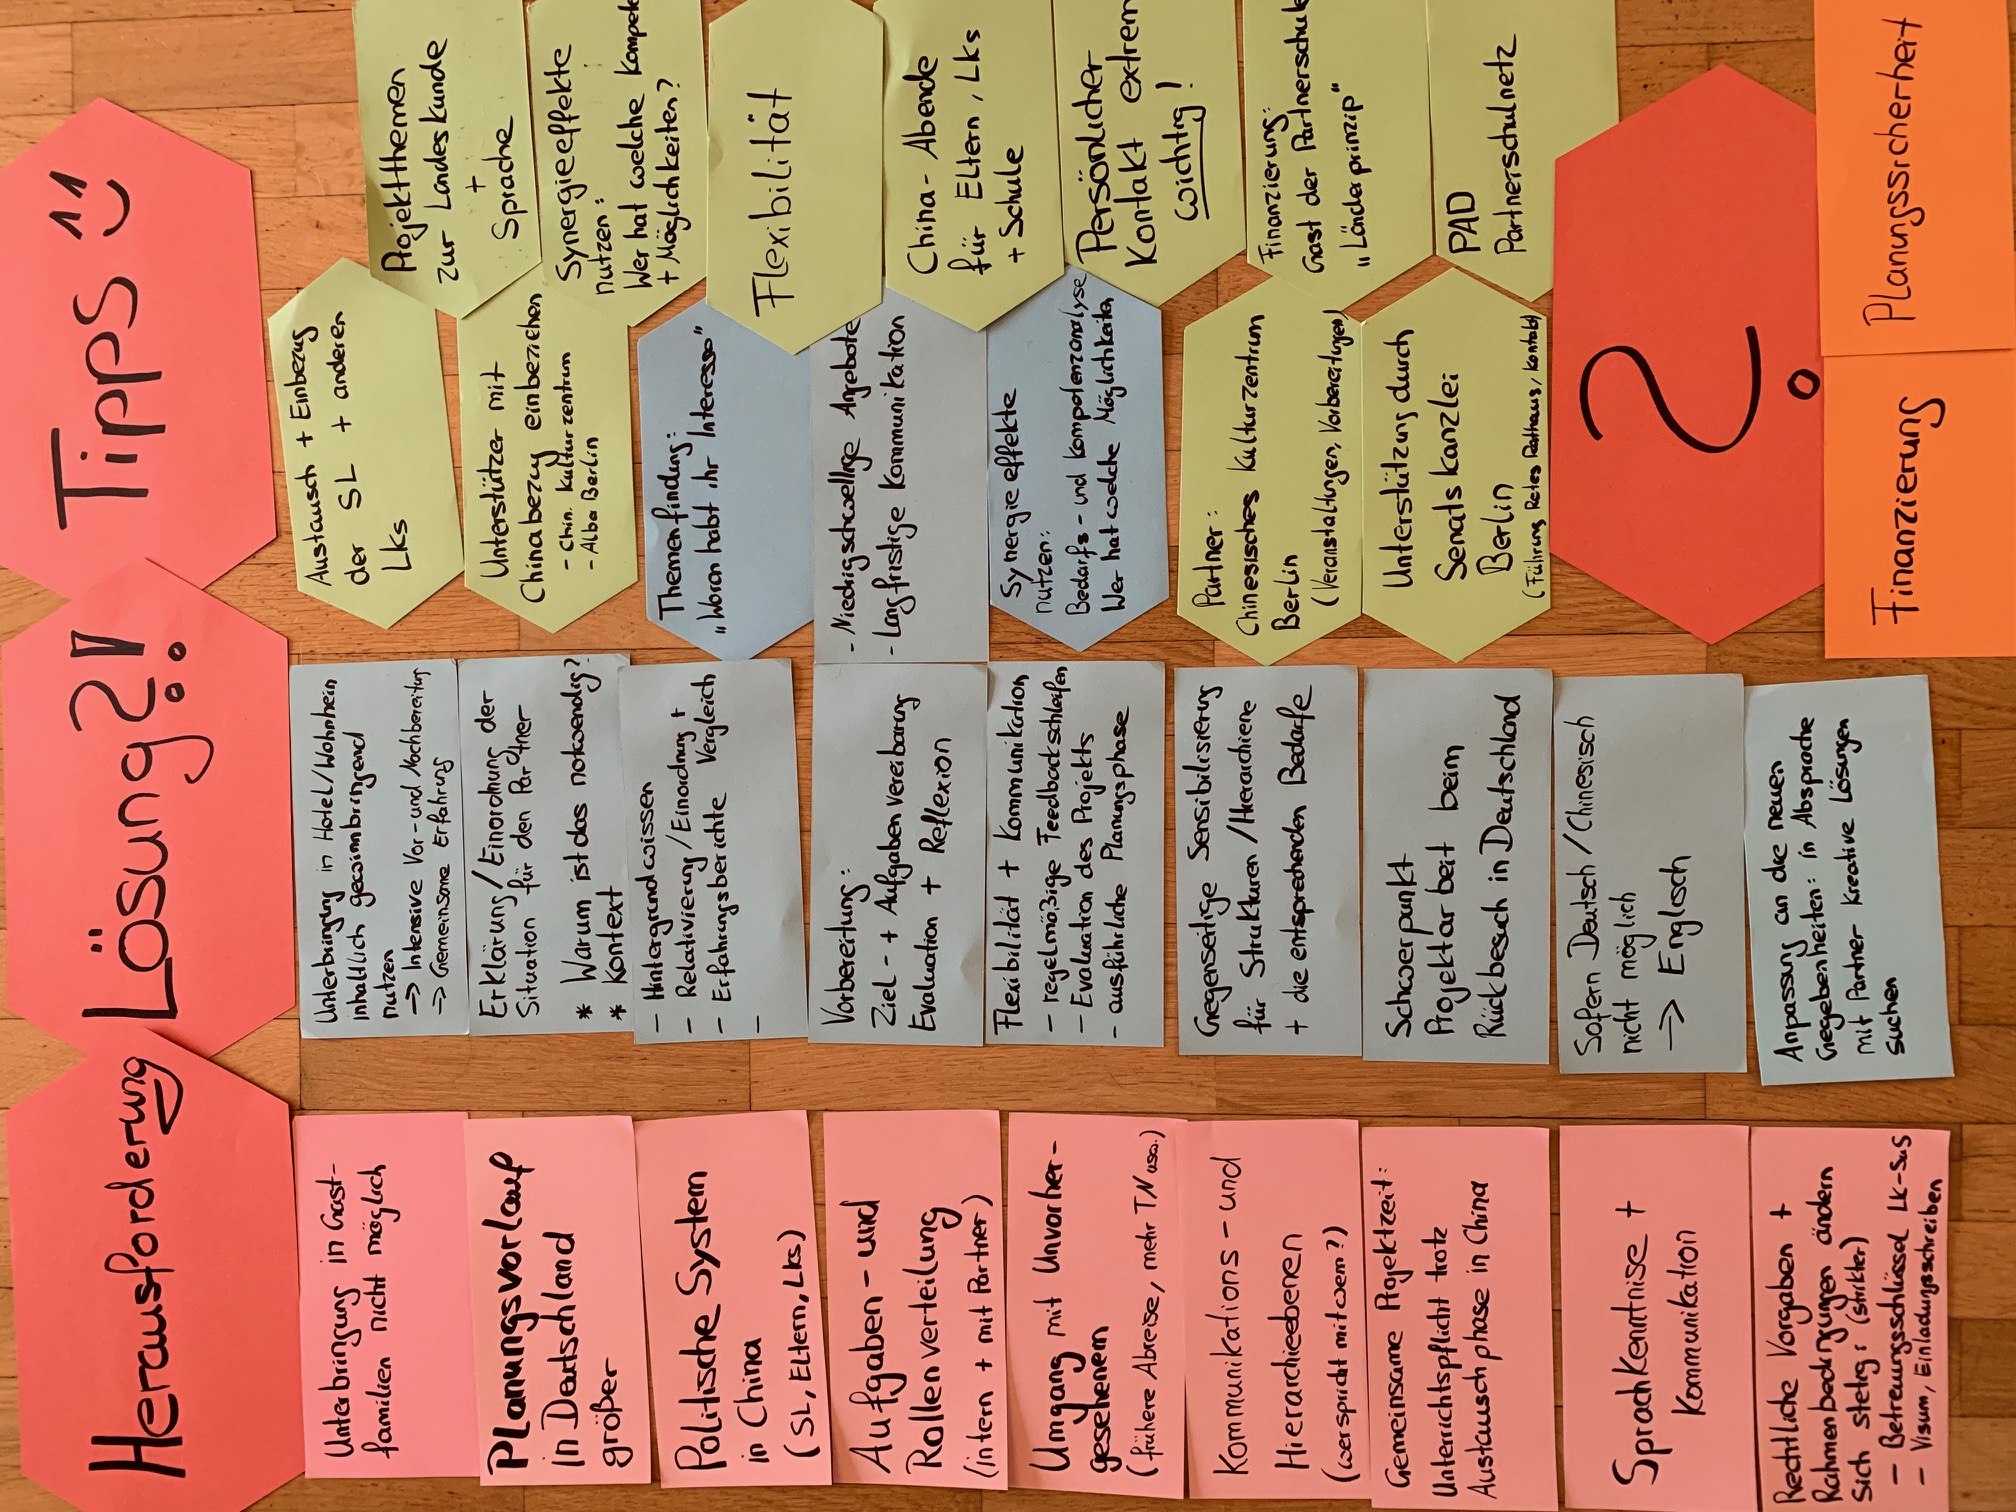 Herausforderung
Unterbringung in Gast-
familien nicht möglich
Planungsvorlauf
in Deutschland
größer
Politische System
in China
(SL, Eltern, Lks)
Aufgaben- und
Rollenverteilung
(intern + mit Partner)
Umgang mit Unvorher-
gesehenem
(frühere Abreise, mehr TN usw.)
Kommunikations- und
Hierarchieebenen
(wer spricht mit wem?)
Gemeinsame Projektzeit:
Unterrichtspflicht trotz
Austauschphase in China
Sprachkenntnise +
Kommunikation
Rechtliche Vorgaben +
Rahmenbedingungen ändern
sich stetig: (strikter)
- Betreuungsschlüssel LK-SuS
- Visum, Einladungsschreiben
Lösung?!
Unterbringung in Hotel/Wohnheim
inhaltlich gewinnbringend
nutzen
-> Intensive Vor- und Nachbereitung
-> Gemeinsame Erfahrung
Erklärung/Einordnung der
Situation für den Partner
* Warum ist das notwendig?
* Kontext
- Hintergrundwissen
- Relativierung/Einordnung +
- Erfahrungsberichte Vergleich
-
Vorbereitung:
Ziel- + Aufgabenvereinbarung
Evaluation + Reflexion
Flexibilität + Kommunikation
- regelmäßige Feedbackschleifen
- Evaluation des Projekts
- ausführliche Planungsphase
Gegenseitige Sensibilisierung
für Strukturen/Hierarchiene
+ die entsprechenden Bedarfe
Schwerpunkt
Projektarbeit beim
Rückbesuch in Deutschland
Sofern Deutsch/Chinesisch
nicht möglich
-> Englisch
Anpassung an die neuen
Gegebenheiten: in Absprache
mit Partner kreative Lösungen
suchen
Tipps
Austausch + Einbezug
der SL + anderen
Lks
Unterstützer mit
Chinabezug einbeziehen
- Chin. Kulturzentrum
- Alba Berlin
Themenfindung:
„Woran habt ihr Interesse"
- Niedrigschwellige Angebote
- Langfristige Kommunikation
Synergieeffekte
nutzen:
Bedarfs- und Kompetenzanalyse
Wer hat welche Möglichkeiten
Partner:
Chinesisches Kulturzentrum
Berlin
(Veranstaltungen, Vorbereitungen)
Unterstützung durch
Senatskanzlei
Berlin
(Führung Rotes Rathaus, Kontakt)
Projektthemen
zur Landeskunde
+
Sprache
Synergieeffekte
nutzen:
Wer hat welche
+ Möglichkeiten?
Flexibilität
China-Abende
für Eltern, Lks
+ Schule
Persönlicher
Kontakt extrem
wichtig!
Finanzierung:
Gast der Partnerschule
„Länderprinzip"
PAD
Partnerschulnetz
?
Finanzierung
Planungssicherheit